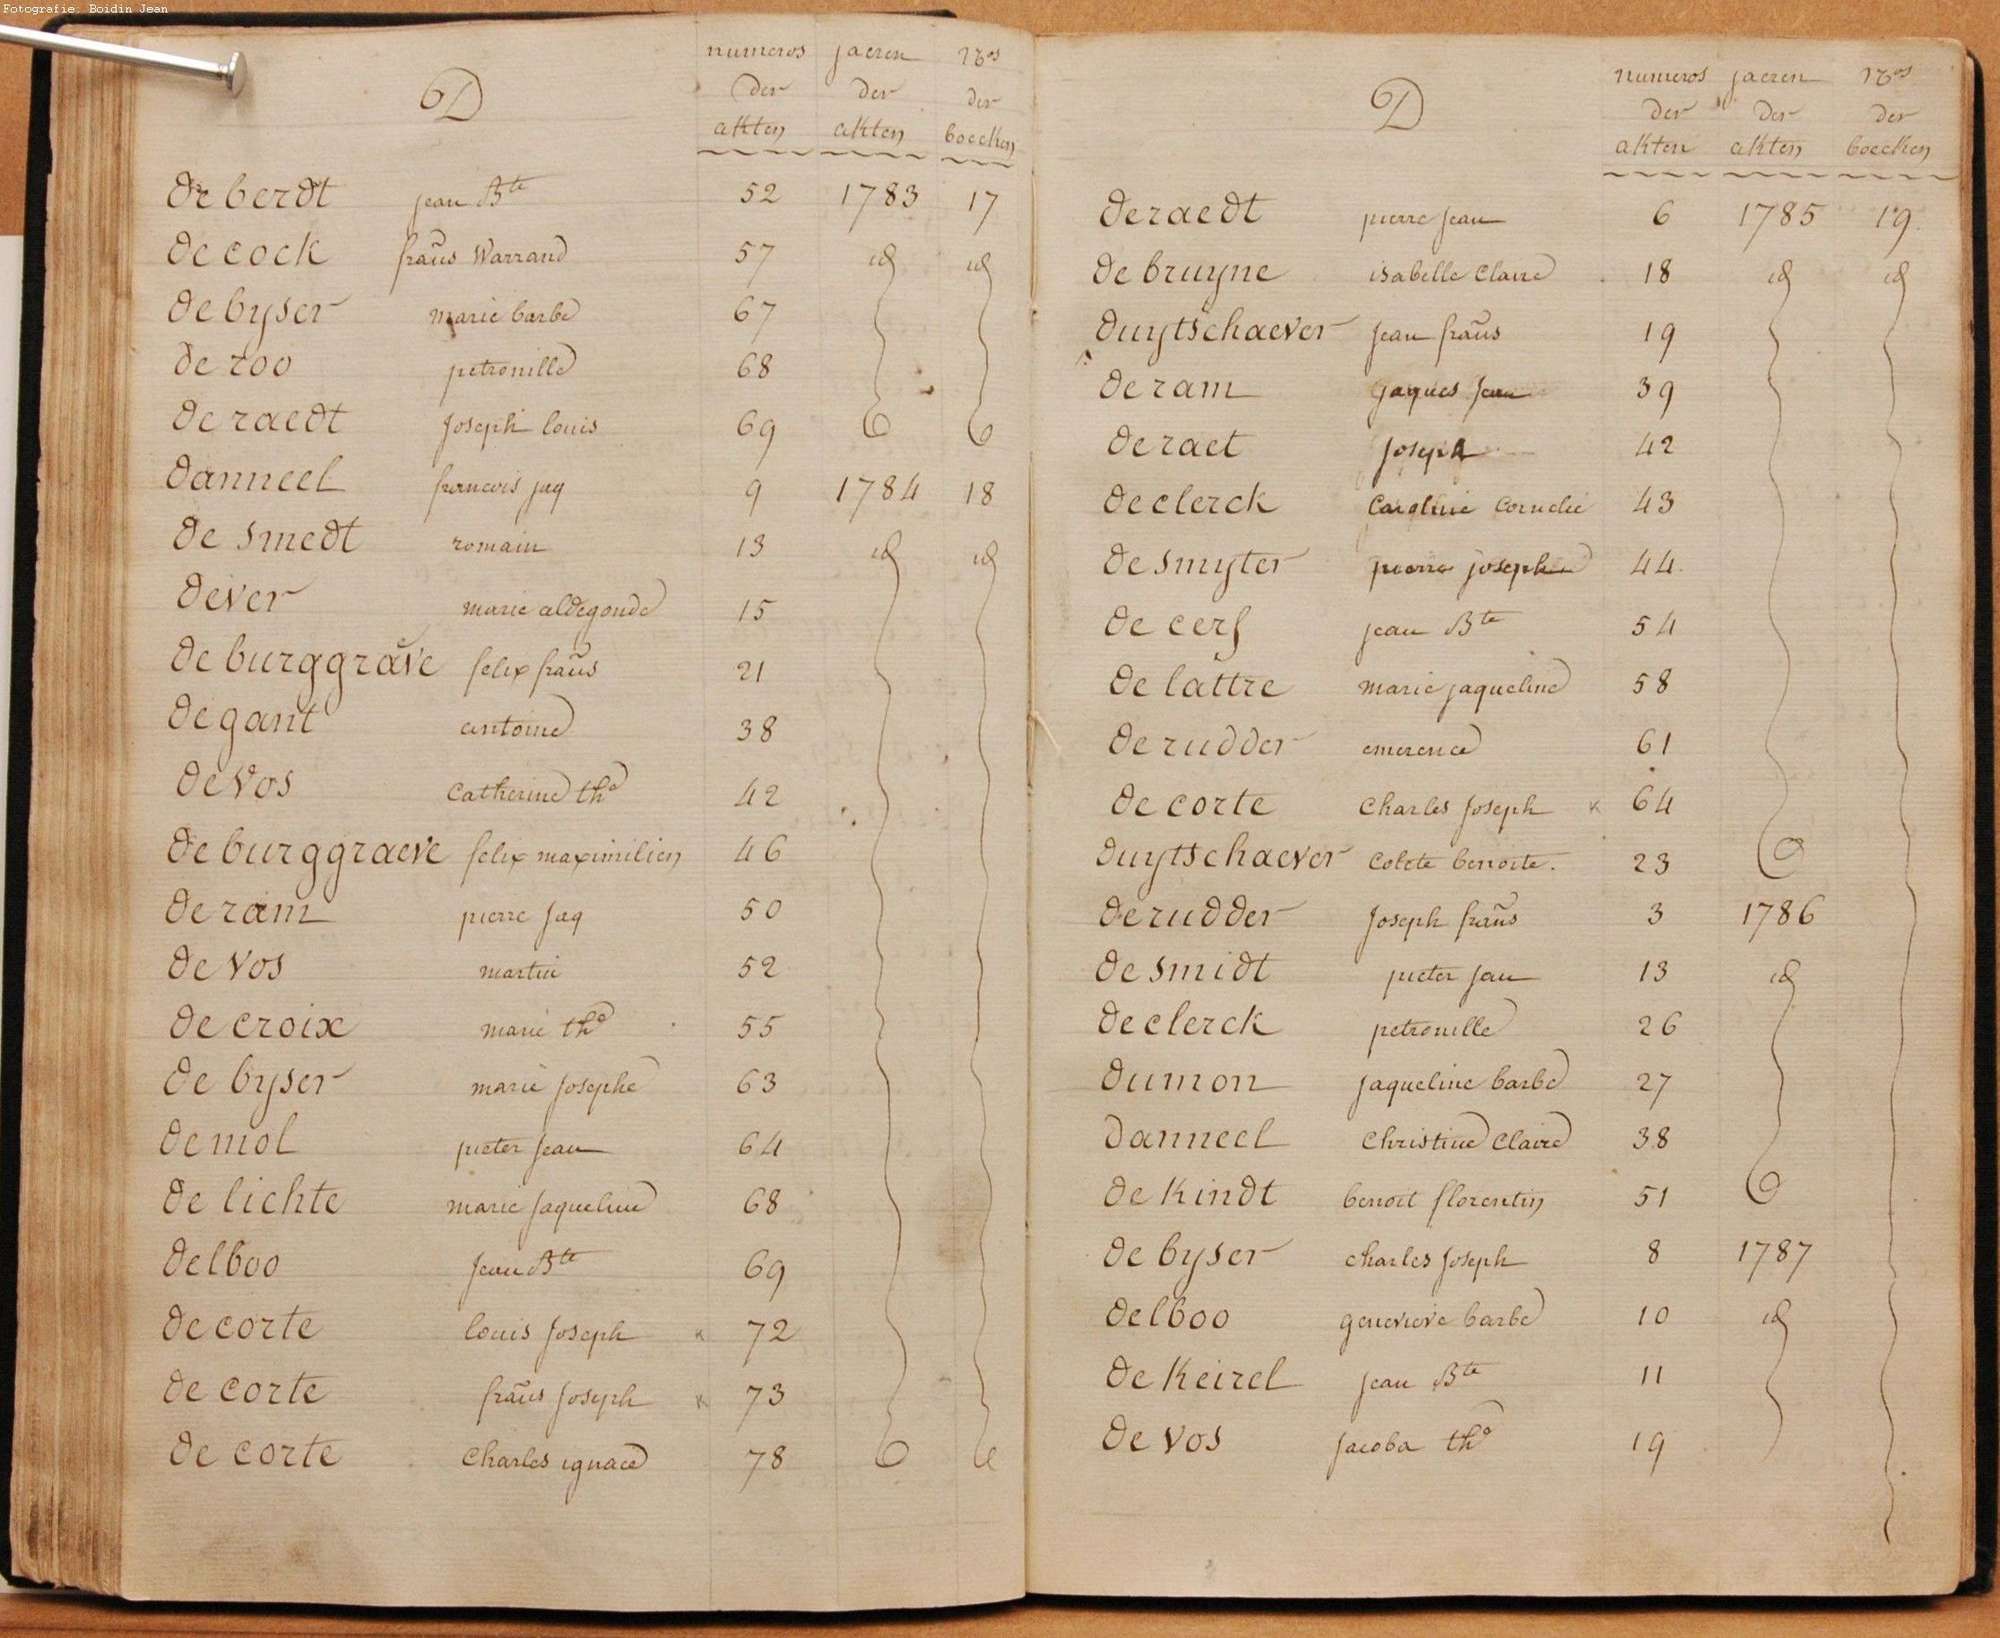 Fotografie: Boidin Jean
D
numeros jaeren Nos
der der der
akten akten boecken
de berdt jean Bte 52 1783 17
de cock frans Warrand 57 id id
de byser marie barbe 67
de roo petronille 68
de raedt joseph louis 69
danneel francois jaq 9 1784 18
de smedt romain 13 id id
dever marie aldegonde 15
de burggrave felix frans 21
de gant antoine 38
de vos catherine the 42
de burggraeve felix maximilien 46
de ram pierre jaq 50
de vos martin 52
de croix marie the 55
de byser marie josephe 63
de mol pieter jean 64
de lichte marie jaqueline 68
delboo jean Bte 69
de corte louis joseph x 72
de corte frans joseph x 73
de corte charles ignace 78
D
numeros jaeren Nos
der der der
akten akten boecken
de raedt pierre jean 6 1785 19
de bruyne isabelle claire 18 id id
duytschaever jean frans 19
de ram jaques jean 39
de raet joseph 42
de clerck caroline cornelie 43
de smyter pierre joseph 44
de cerf jean Bte 54
de lattre marie jaqueline 58
de rudder emerence 61
de corte charles joseph x 64
duytschaever colete benoite. 23
de rudder joseph frans 3 1786
de smidt pieter jan 13 id
de clerck petronille 26
dumon jaqueline barbe 27
danneel christine claire 38
de kindt benoit florentin 51
de byser charles joseph 8 1787
delboo genevieve barbe 10 id
de keirel jean Bte 11
de vos jacoba the 19